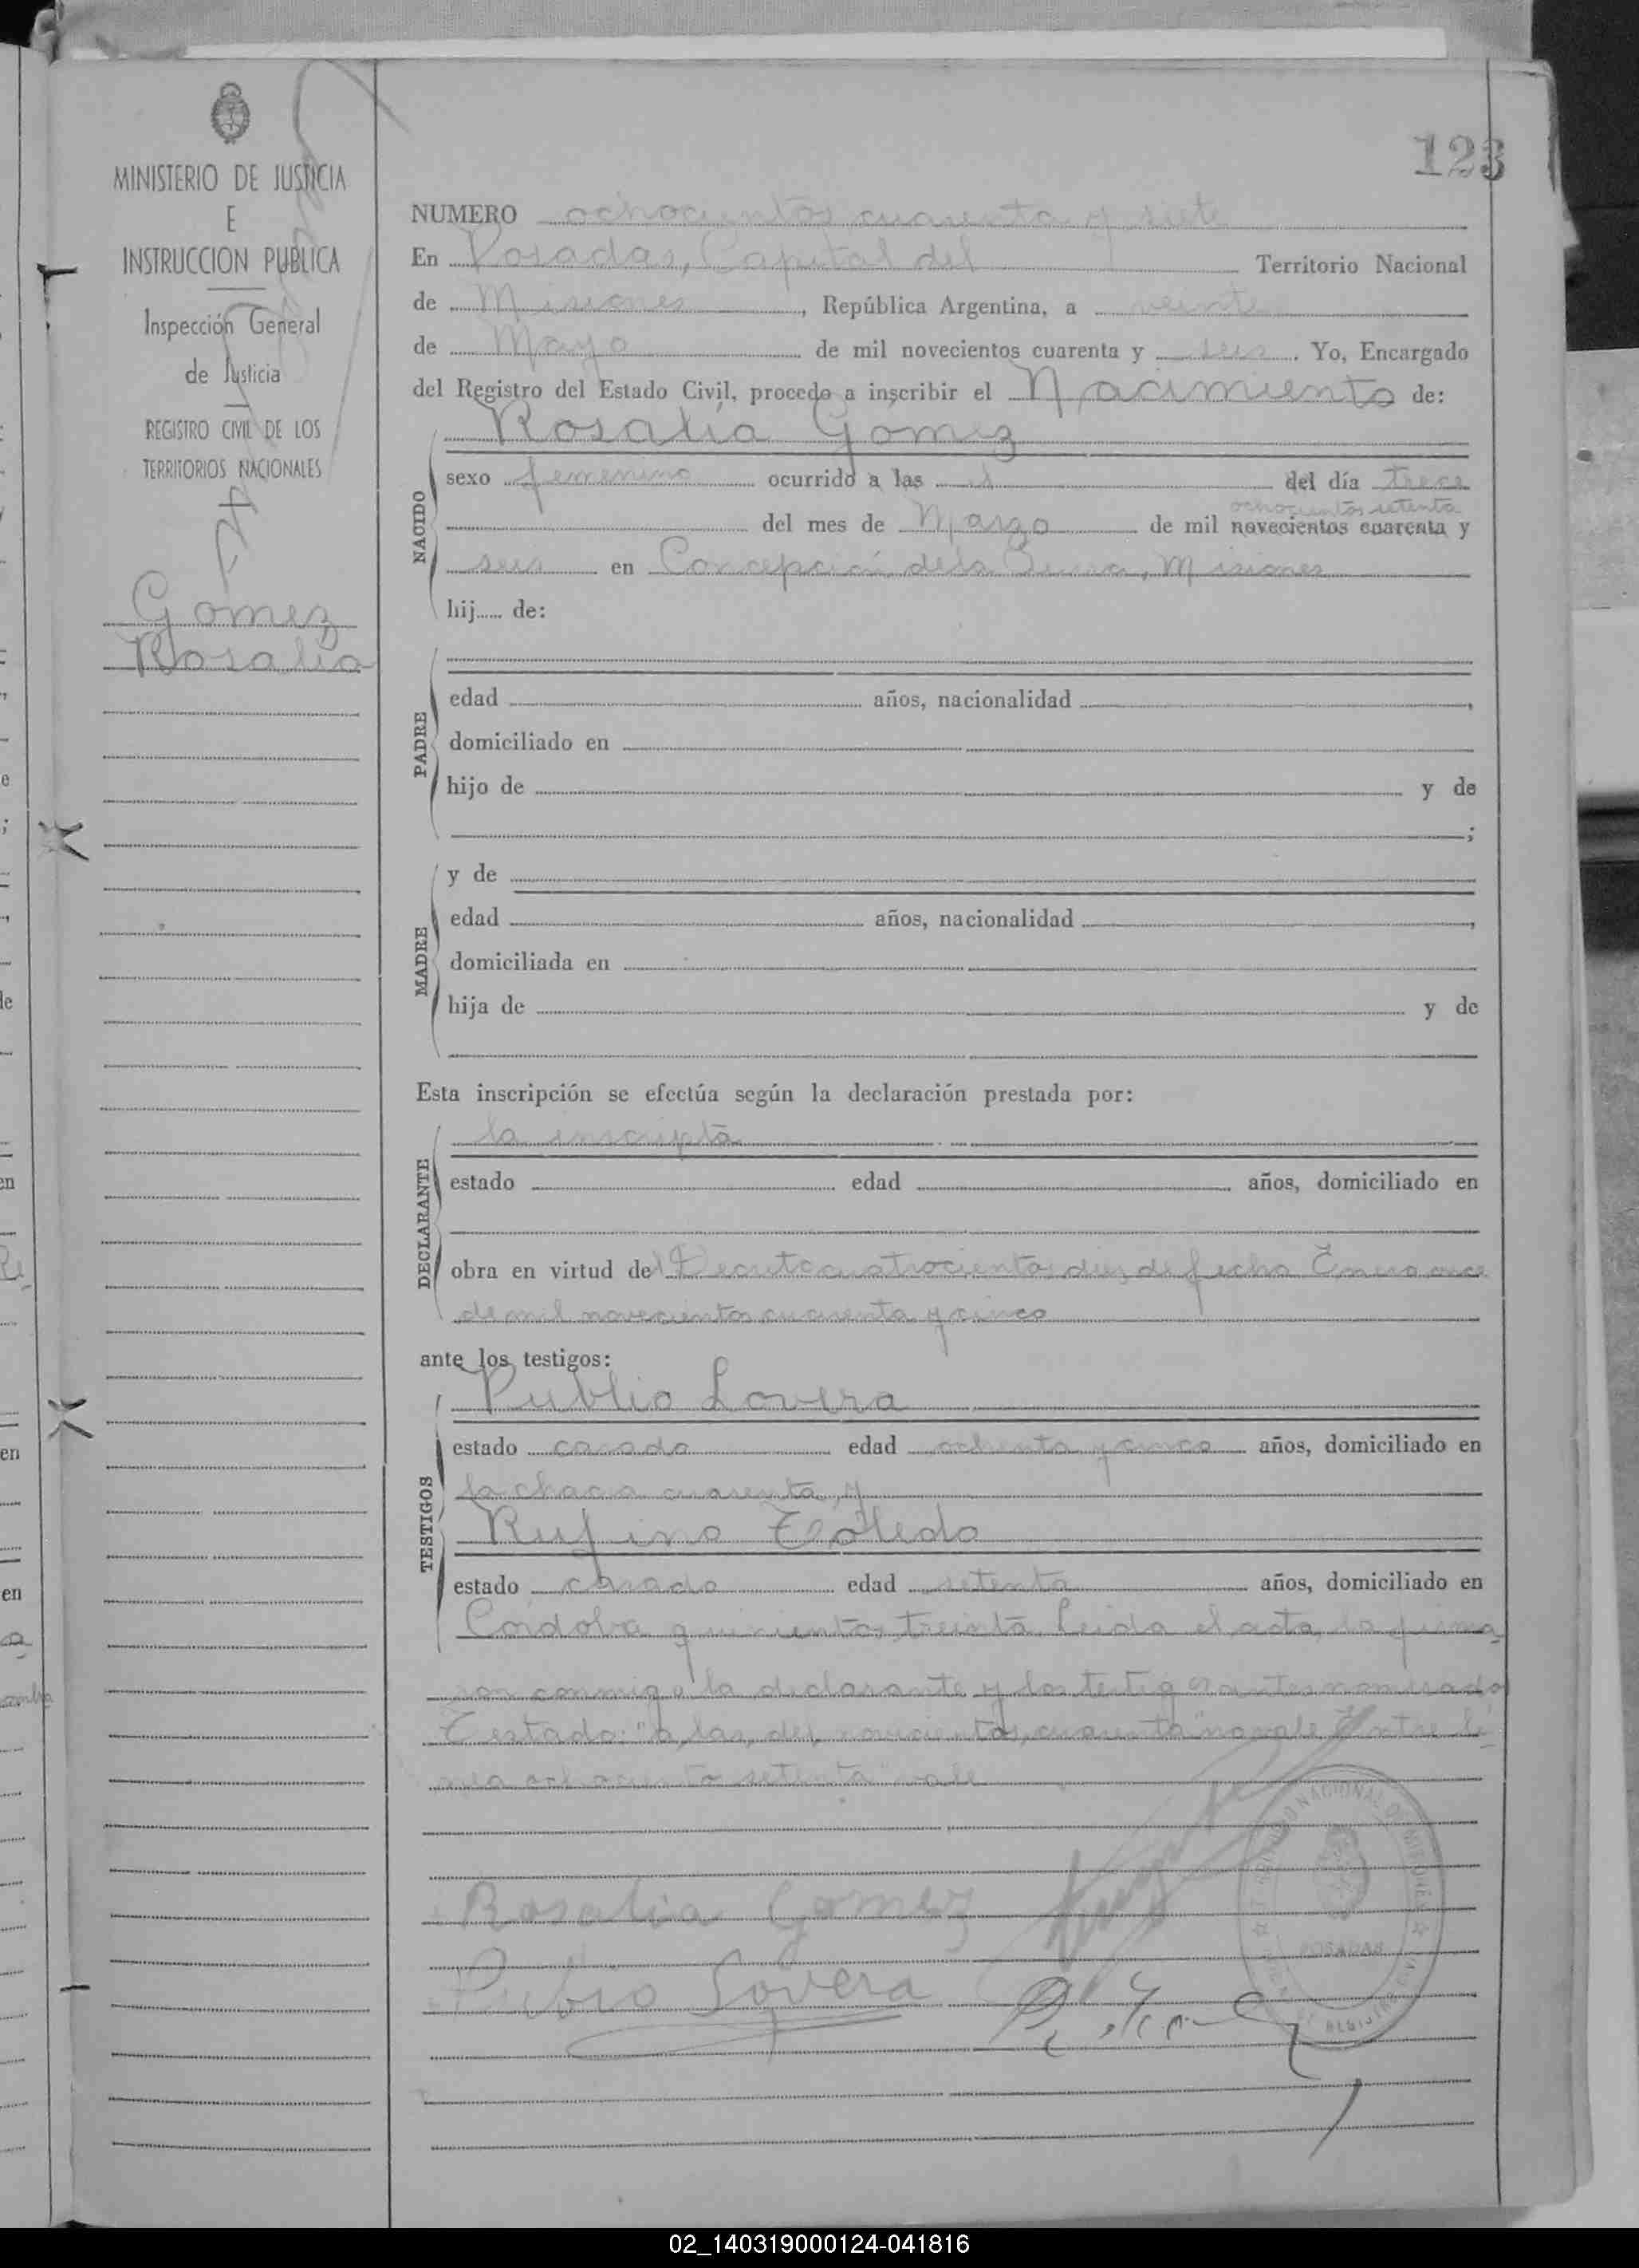 123
MINISTERIO DE JUSTICIA
E
INSTRUCCION PUBLICA
Inspección General
de Justicia
REGISTRO CIVIL DE LOS
TERRITORIOS NACIONALES
Gomez
Rosalia
NUMERO ochocientos cuarenta y siete
En Posadas, Capital del Territorio Nacional
de Misiones, República Argentina, a veinte
de Mayo de mil novecientos cuarenta y seis. Yo, Encargado
del Registro del Estado Civil, procedo a inscribir el Nacimiento de:
Rosalia Gómez
NACIDO
sexo femenino ocurrido a las el del día trece
ochocientos setenta
del mes de Marzo de mil novecientos cuarenta y
seis en Concepción de la Sierra, Misiones
hij..... de:
PADRE
edad años, nacionalidad ,
domiciliado en
hijo de y de
;
MADRE
y de
edad años, nacionalidad ,
domiciliada en
hija de y de
Esta inscripción se efectúa según la declaración prestada por:
DECLARANTE
la inscripta
estado edad años, domiciliado en
obra en virtud del Decreto cuatrocientos diez de fecha Enero once
de mil novecientos cuarenta y cinco
ante los testigos:
TESTIGOS
Publio Lovera
estado casado edad ochenta y cinco años, domiciliado en
la chacra cuarenta, y
Rufino Toledo
estado casado edad setenta años, domiciliado en
Córdoba quinientos treinta. Leida el acta, la firma
ron conmigo la declarante y los testigos antes nombrados
Testado: "a las, del, novecientos, cuarenta" no vale. Entre li
nea ochocientos setenta" vale
Rosalia Gomez
Publio Lovera
NACIONAL DE MISIONES
POSADAS
02_140319000124-041816